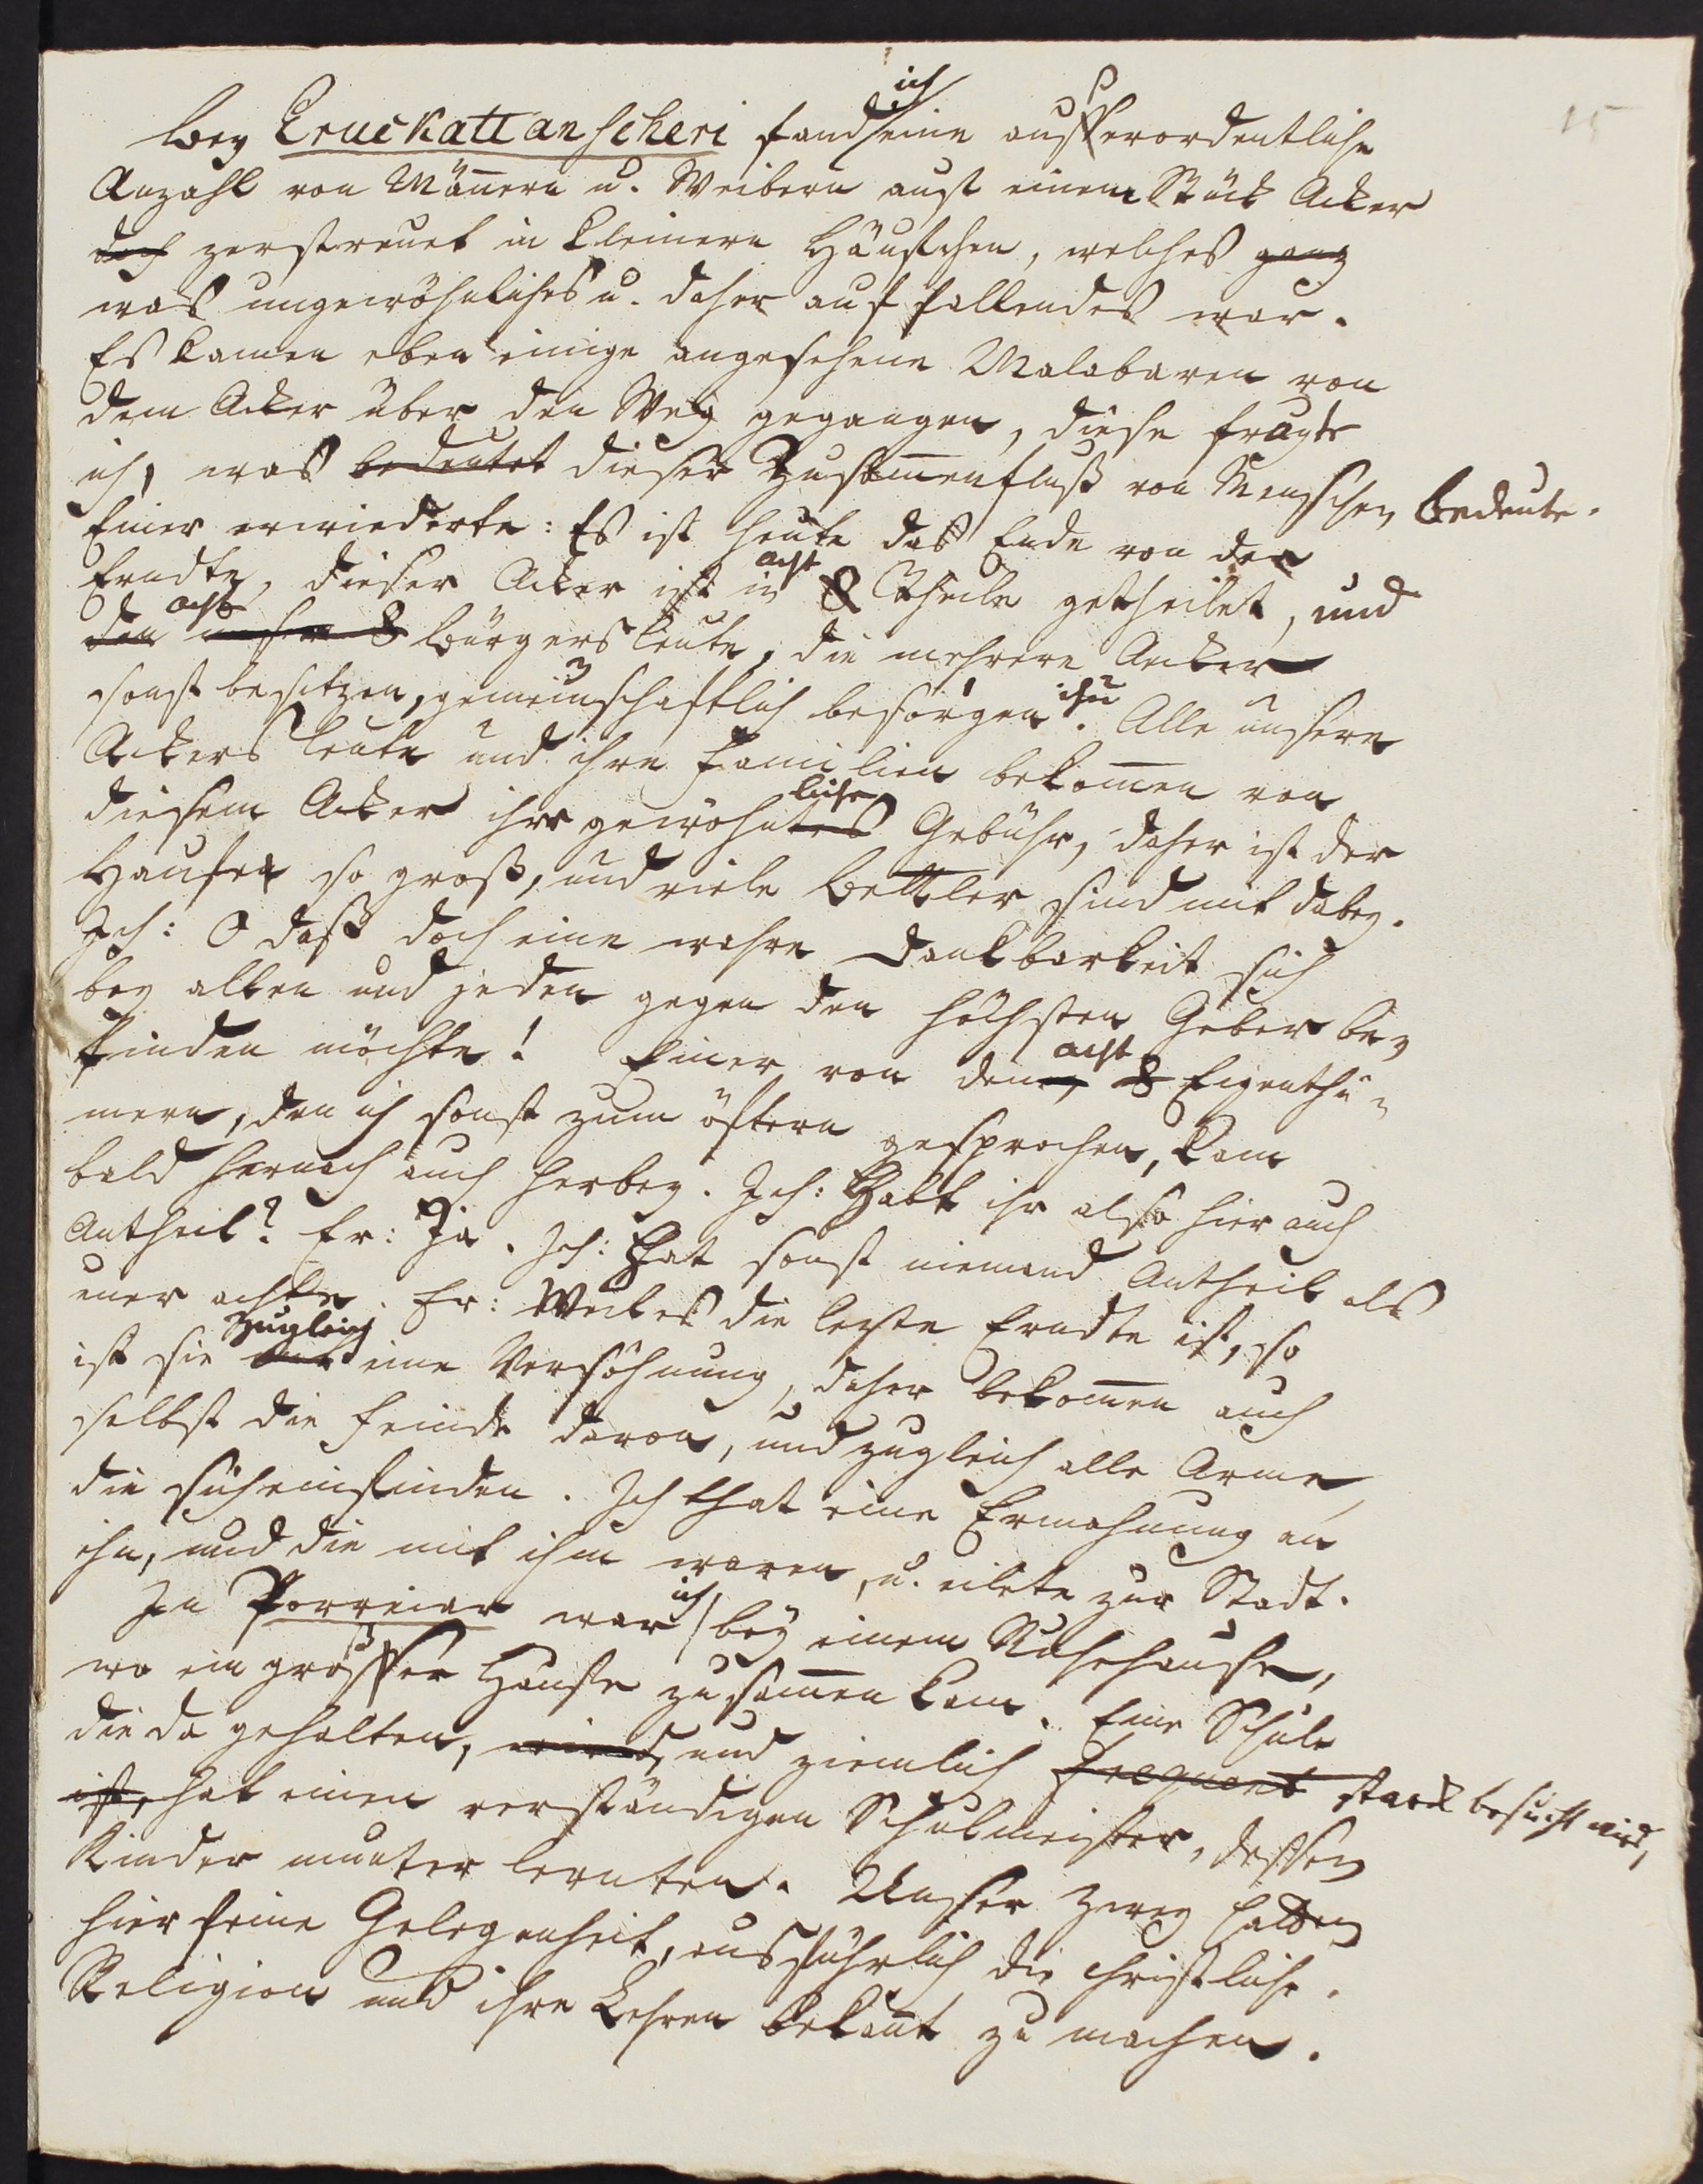 15
Bey Eruckattanscheri fand ich eine ausserordentliche
Anzahl von Männern u. Weibern auf einem Stück Acker
doch zerstreuet in kleinern Häufchen, welches ganz
was ungewöhnliches u. daher auffallendes war.
Es kamen eben einige angesehene Malabaren von
dem Acker über den Weg gegangen, diese fragte
ich, was bedeutet dieser Zusam̄enfluß von Menschen bedeute.
Einer erwiederte: Es ist heute das Ende von der
Erndte, dieser Acker ist in acht 8 Theile getheilet, und
den acht unsere 8 Bürgersleute, die mehrere Äcker
sonst besitzen, gemeinschaftlich besorgen ihn. Alle unsere
Ackersleute und ihre Familien bekom̄en von
diesem Acker ihre gewöhntes liche Gebühr, daher ist der
Haufen so groß, und viele Bettler sind mit dabey.
Ich: O daß doch eine wahre Dankbarkeit sich
bey allen und jeden gegen den höchsten Geber be-
finden möchte! Einer von den acht 8 Eigenthü-
mern, den ich sonst zum öftern gesprochen, kam
bald hernach auch herbey. Ich: Habt ihr also hier auch
Antheil? Er: Ja. Ich: Hat sonst niemand Antheil als
euer achte. Er: Weil es die lezte Erndte ist, so
ist sie zugleich eine Versöhnung, daher bekom̄en auch
selbst die Feinde davon, und zugleich alle Arme,
die sich einfinden. Ich that eine Ermahnung an
ihn, und die mit ihm waren, u. eilete zur Stadt.
In Porreiar war ich bey einem Ruhehause,
wo ein grosser Haufe zusam̄en kam. Eine Schule
die da gehalten, wird, und ziemlich frequent starck besucht wird,
ist, hat einen verständigen Schulmeister, dessen
Kinder munter lernten. Unser zwey hatten
hier seine Gelegenheit, ausführlich die christliche
Religion und ihre Lehren bekan̄t zu machen.